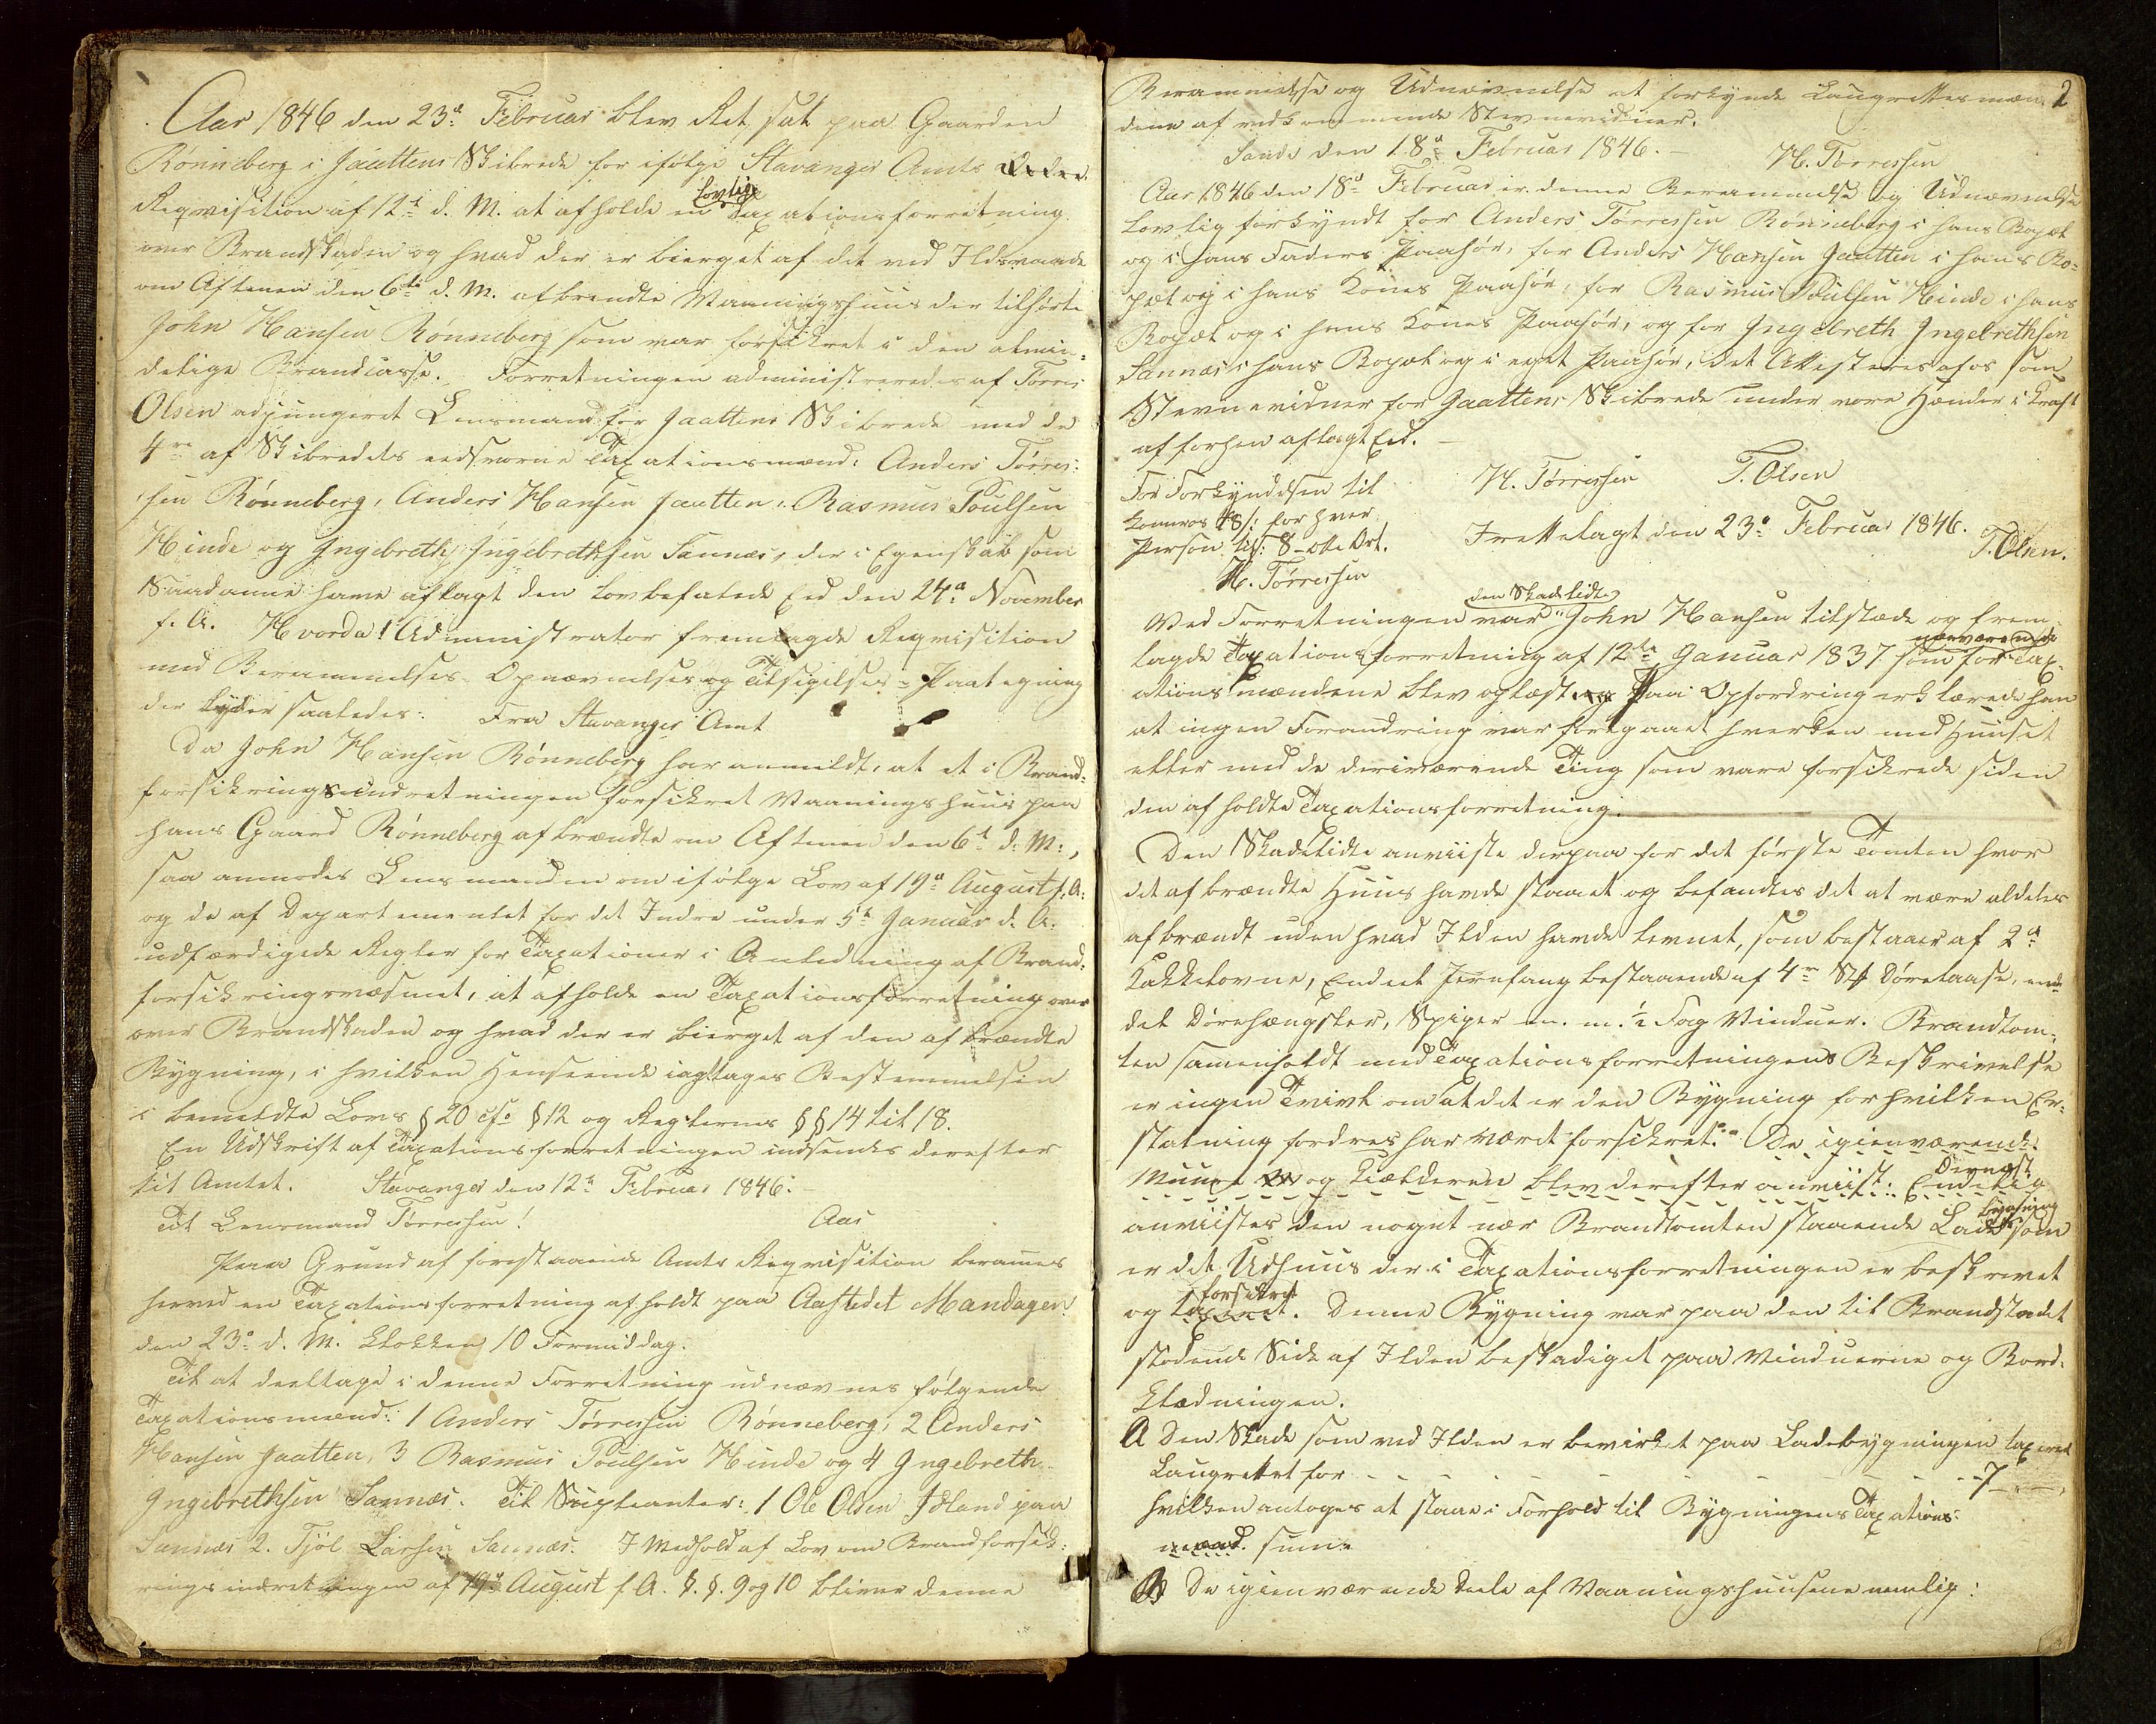 Aar 1846 den 23d Februar blev Ret sat paa Gaarden
Rönneberg i Jaattens Skibrede for ifølge Stavanger Amts
Reqvisition af 12t d. M. at afholde en lovlig Taxationsforretning
over Brandskaden og hvad der er bierget af det ved Ildsvaade
om Aftenen den 6te d. M. afbrendte Vaaningshuus der tilhørte
John Hansen Rønneberg som var forsikret i den almin-
delige Brandcasse. Forretningen administreredes af Tørres
Olsen adjungeret Lensmand for Jaattens Skibrede med de
4re af Skibredets eedsvorne Taxationsmænd: Anders Tørres-
sen Rönneberg, Anders Hansen Jaatten, Rasmus Poulsen
Hinde og Ingebreth Ingebrethsen Sannæs, der i Egenskab som
Saadanne have aflagt den lovbefalede Eed den 24d November
f. A. Hvorda! Administrator fremlagde Reqvisition
med Berammelses- Opnævnelses og Tilsigelses-Paategning
der lyder saaledes: Fra Stavanger Amt
Da John Hansen Rönneberg har anmeldt, at et i Brand-
forsikringsindretningen forsikret Vaaningshuus paa
hans Gaard Rönneberg afbrændte om Aftenen den 6t d: M:,
saa anmodes Lensmanden om ifølge Lov af 19d August f. A:
og de af Departementet for det Indre under 5t Januar d. A.
udfærdigede Regler for Taxationer i Anledning af Brand-
forsikringsvæsenet, at afholde en Taxationsforretning over
over Brandskaden og hvad der er bierget af den afbrændte
Bygning, i hvilken Henseende iagttages Bestemmelsen
i bemeldte Lovs § 20 cfr § 12 og Reglernes § § 14 til 18.
En Udskrift af Taxationsforretningen indsendes derefter
til Amtet. Stavanger den 12te Februar 1846.
Til Lensmand Tørressen! Aas
Paa Grund af forestaaende Amts Reqvisition berammes
herved en Taxationsforretning afholdt paa Aastedet Mandagen
den 23d d. M. Klokken 10 Formiddag.
Til at deeltage i denne Forretning udnævnes følgende
Taxationsmænd: 1 Anders Tørressen Rönneberg, 2 Anders
Hansen Jaatten, 3 Rasmus Poulsen Hinde og 4 Ingebreth
Ingebrethsen Sannæs. Til Supleanter: 1 Ole Olsen Idland paa
Sannæs 2. Tjöl Larsen Sannæs. I Medhold af Lov om Brandforsik-
ringsindretningen af 19d August f. A. §. §. 9 og 10 bliver denne
2
Berammelse og Udnævnelse at forkynde Laugrettesmæn-
dene af vedkommende Stevnevidner.
Sande den 18d Februar 1846. H. Tørressen
Aar 1846 den 18d Februar er denne Berammelse og Udnævnelse
lovlig forkyndt for Anders Tørressen Rönneberg i hans Bopæl
og i hans Faders Paahør, for Anders Hansen Jaatten i hans Bo-
pæl og i hans Kones Paahør, for Rasmus Poulsen Hinde i hans
Bopæl og i hans Kones Paahør, og for Ingebreth Ingebrethsen
Sannæs i hans Bopæl og i eget Paahør, det Attesteres af os som
Stevnevidner for Jaattens Skibrede under vore Hænder i Kraft
af forhen aflagt Eed.
For Forkyndelsen til- H. Tørressen T. Olsen
kommer os 18 s: for hver
Person tils: 8- otte Ort. Irettelagt den 23d Februar 1846. T. Olsen.
H. Tørressen
Ved Forretningen var den Skadelidte John Hansen tilstæde og frem-
lagde Taxationsforretning af 12te Januar 1837 som for nærværende Tax-
ationsmændene blev oplæst. Paa Opfordring erklærede han
at ingen Forandring var foregaaet hverken med Huuset
eller med de deriværende Ting som vare forsikrede siden
den afholdte Taxationsforretning.
Den Skadelidte anviiste derpaa for det første Tomten hvor
det afbrændte Huus havde staaet og befandtes det at være aldeles
afbrændt uden hvad Ilden havde levnet, som bestaaer af 2de
Kakkelovne, Endeel Jernfang bestaaende af 4re St. Dørelaase, en-
del Dørehængsler, Spiger m. m. ½ Fag Vinduer. Brandtom-
ten samenholdt med Taxationsforretningens Beskrivelse
er ingen Tvivl om at det er den Bygning for hvilken Er-
statning fordres har været forsikret. De igienværende
Muure og Kielderen blev derefter anviist: Endelig Dernæst
anviistes den noget nær Brandtomten staaende Ladebygning som
er det Udhuus der i Taxationsforretningen er beskrevet
og taxeret. forsikret Denne Bygning var paa den til Brandstædet
stødende Side af Ilden beskadiget paa Vinduerne og Bord-
klædningen.
A Den Skade som ved Ilden er bevirket paa Ladebygningen taxered
Laugrettet for - - - - - - - 7
hvilken antages at staae i Forhold til Bygningens Taxations-
sum.
B De igienværende Deele af Vaaningshuusene nemlig: